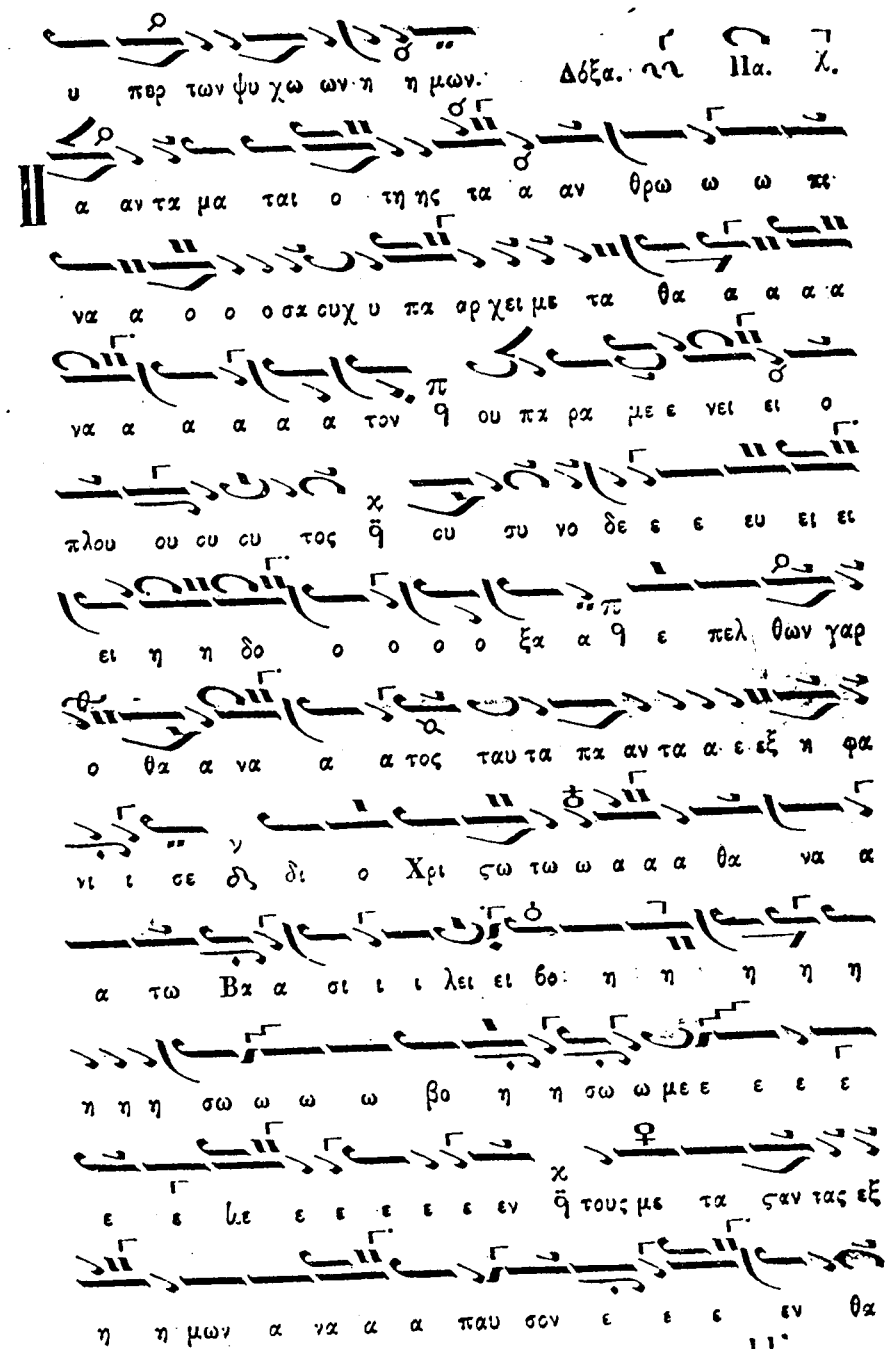 υ περ των ψυ χω ων η η μων. Δόξα. Πα. χ.
Π α αν τα μα ται ο τη ης τα α αν θρω ω ω πι
να α ο ο ο σα ουχ υ πα αρ χει με τα θα α α α α
να α α α α α τον π ϙ ου πα ρα με ε νει ει ο
πλου ου ου ου τος κ ϙ ου συ νο δε ε ε ευ ει ει
ει η η δο ο ο ο ο ξα α π ϙ ε πελ θων γαρ
ο θα α να α α τος ταυ τα πα αν τα α ε εξ η φα
νι ι σε ν δι ο Χρι ϛω τω ω α α α θα να α
α τω Βα α σι ι ι λει ει βο η η η η η
η η η σω ω ω ω βο η η σω ω με ε ε ε ε
ε ε ε ε ε ε ε ε εν κ ϙ τους με τα ϛαν τας εξ
η η μων α να α α παυ σον ε ε ε εν θα